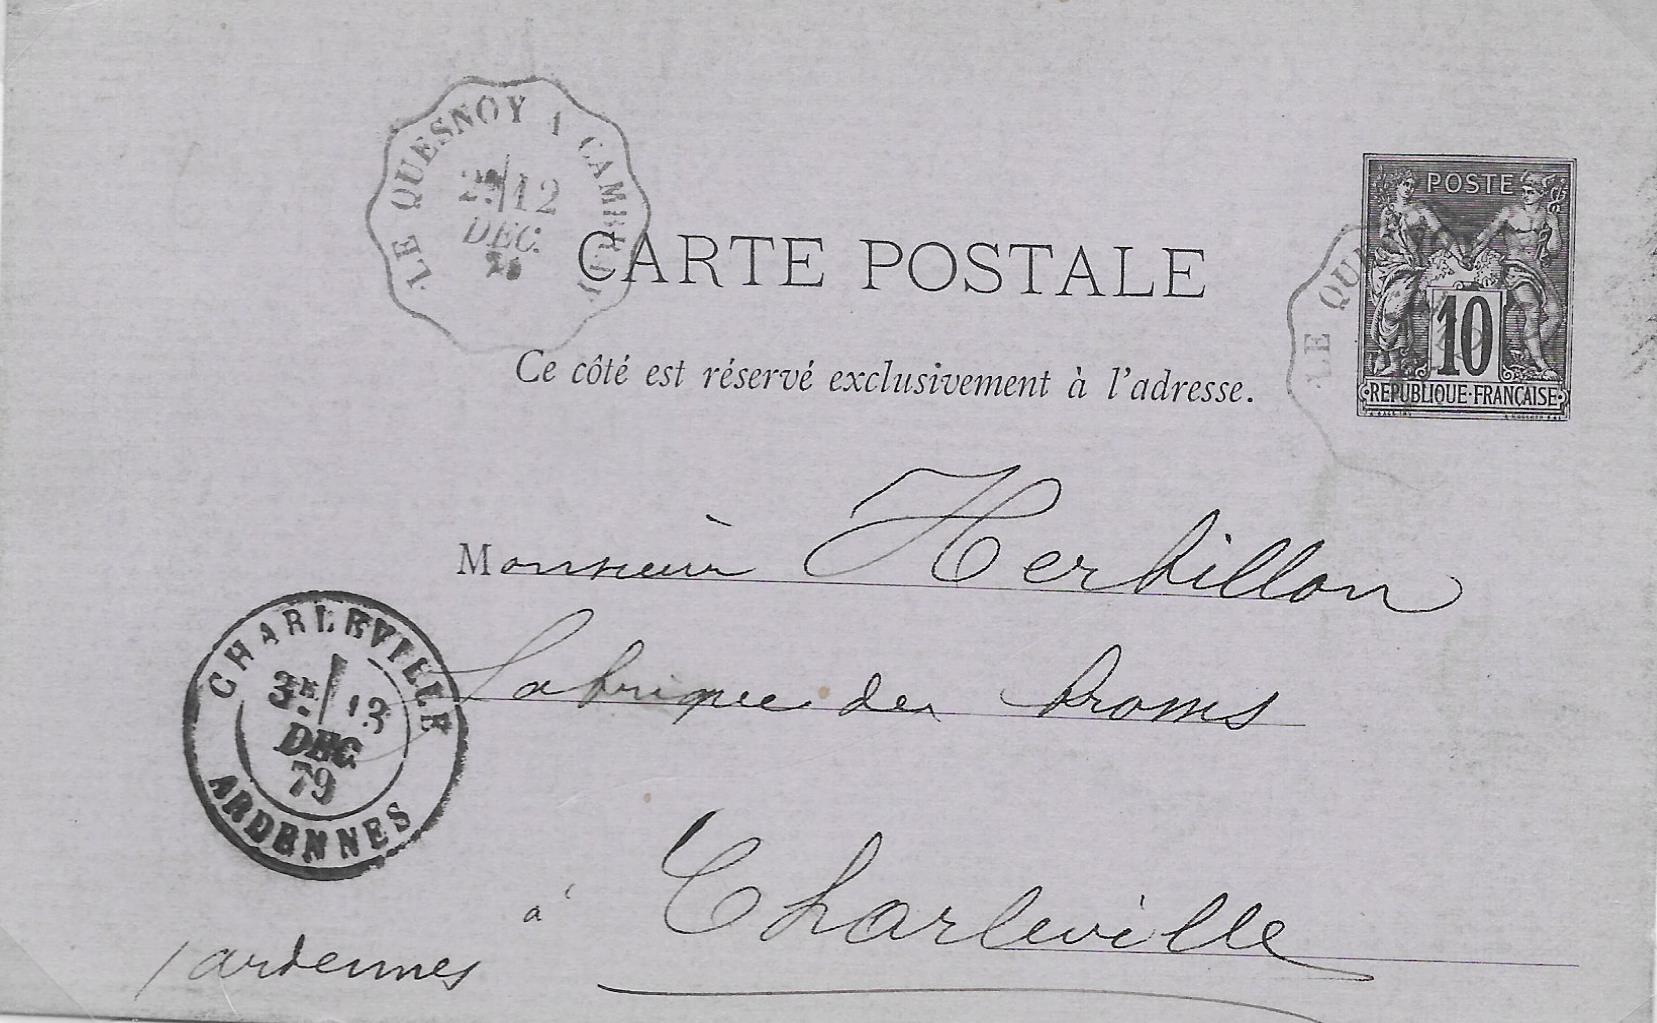 LE QUESNOY A CAMBRAI
2E/12
DEC.
79
POSTE
10
REPUBLIQUE·FRANÇAISE
LE QU
CARTE POSTALE
Ce côté est réservé exclusivement à l'adresse.
Monsieur Herbillon
fabrique de
CHARLEVILLE
3E/13
DEC
79
ARDENNES
à Charleville
/ardennes